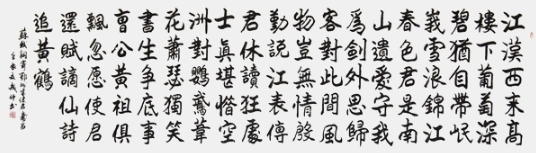 江漢西来高
樓下葡萄深
碧猶自帶岷
峩雪浪錦江
春色君是南
山遺愛守我
為劍外思歸
客對此間風
物豈無情殷
勤説江表傳
君休讀狂處
士真堪惜空
洲對鸚鵡葦
花蕭瑟獨笑
書生爭底事
曹公黄祖俱
飄忽愿使君
還賦謫仙詩
追黄鶴
蘇軾詞寄鄂州朱使君壽昌